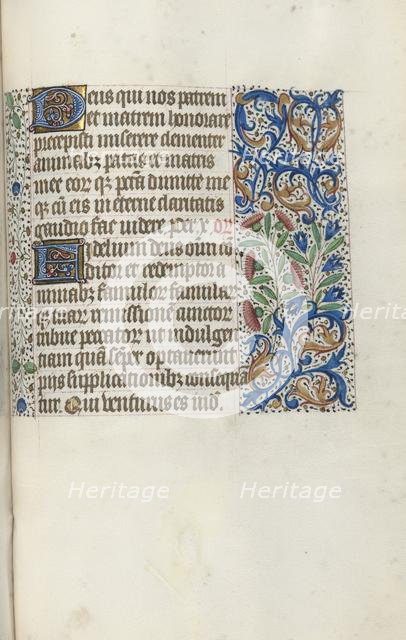 Deus qui nos patrem
et matrem honorare
precepisti miserere clementer
animabꝫ patris et matris
mee eorqꝫ pctā dimitte me
qꝫ cū eis in eterne claritatis
gaudio fac videre per x or
Fidelium deus omniū
ditor et redemptor a
nimabꝫ famulor famular
qꝫ tuar remissionē cunctor
tribue peccator ut indulgē
tiam quā semꝑ optaverunt
pijs supplicationibꝫ consequā
tur Qui venturus es iud
Heritage
Heritage
Heritage
Heritage
Heritage
Heritage